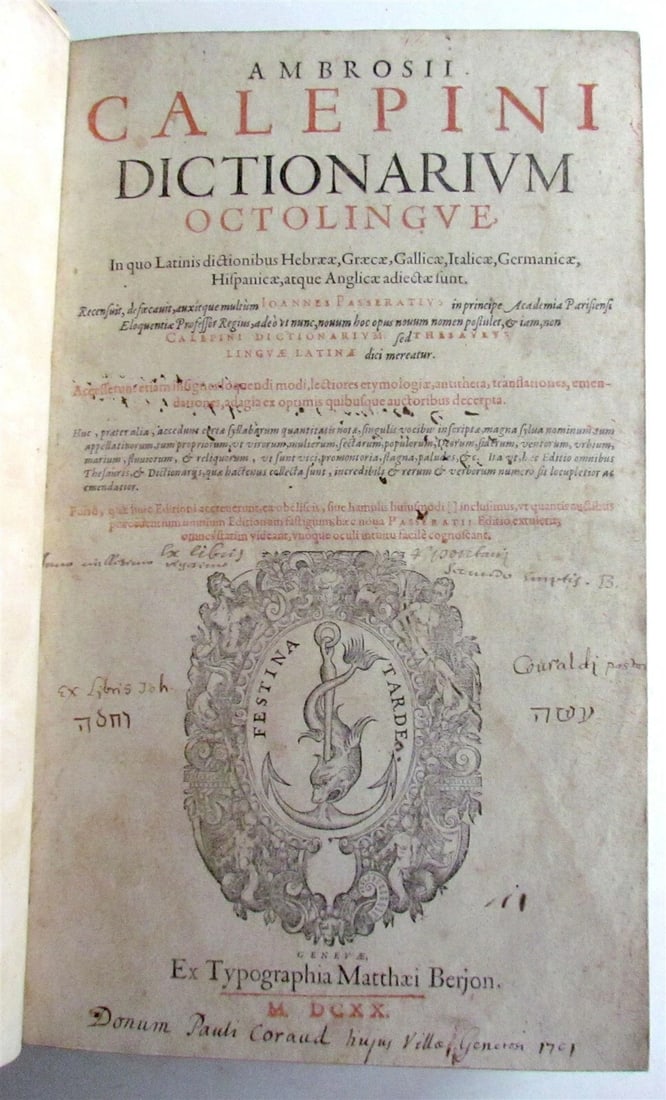 AMBROSII
CALEPINI
DICTIONARIVM
OCTOLINGVE,
In quo Latinis dictionibus Hebrææ, Græcæ, Gallicæ, Italicæ, Germanicæ,
Hiſpanicæ, atque Anglicæ adiectæ ſunt.
Recenſuit, defæcauit, auxitque multùm IOANNES PASSERATIVS in principe Academia Pariſienſi
Eloquentiæ Profeſſor Regius, adeò vt nunc, nouum hoc opus nouum nomen poſtulet, & iam, non
CALEPINI DICTIONARIVM ſed THESAVRVS
LINGVÆ LATINÆ dici mereatur.
Acceſſerunt etiam inſignes loquendi modi, lectiores etymologiæ, antitheta, tranſlationes, emen-
dationes, adagia ex optimis quibuſque auctoribus decerpta.
Huc, præter alia, accedunt certæ ſyllabarum quantitatis notæ, ſingulis vocibus inſcriptæ, magna ſylua nominum, tum
appellatiuorum, tum propriorum, vt virorum, mulierum, ſectarum, populorum, ſiderum, ventorum, vrbium,
marium, fluuiorum, & reliquorum, vt ſunt vici, promontoria, ſtagna, paludes, &c. Ita vt hæc Editio omnibus
Theſauris, & Dictionariis, quæ hactenus collecta ſunt, incredibili & rerum & verborum numero ſit locupletior ac
emendatior.
quæ huic Editioni accreuerunt, ea obeliſcis, ſiue hamulis huiuſmodi [] incluſimus, vt quantis auctibus
præcedentium omnium Editionum faſtigium, hæc noua PASSERATII Editio extulerit,
omnes ſtatim videant, vnoque oculi intuitu facilè cognoſcant.
Ex libris
Ex Libris Joh. Couraldj
עשה
FESTINA TARDE.
GENEVÆ,
Ex Typographia Matthæi Berjon.
M. DCXX.
Donum Pauli Coraud hujus Villæ 1701